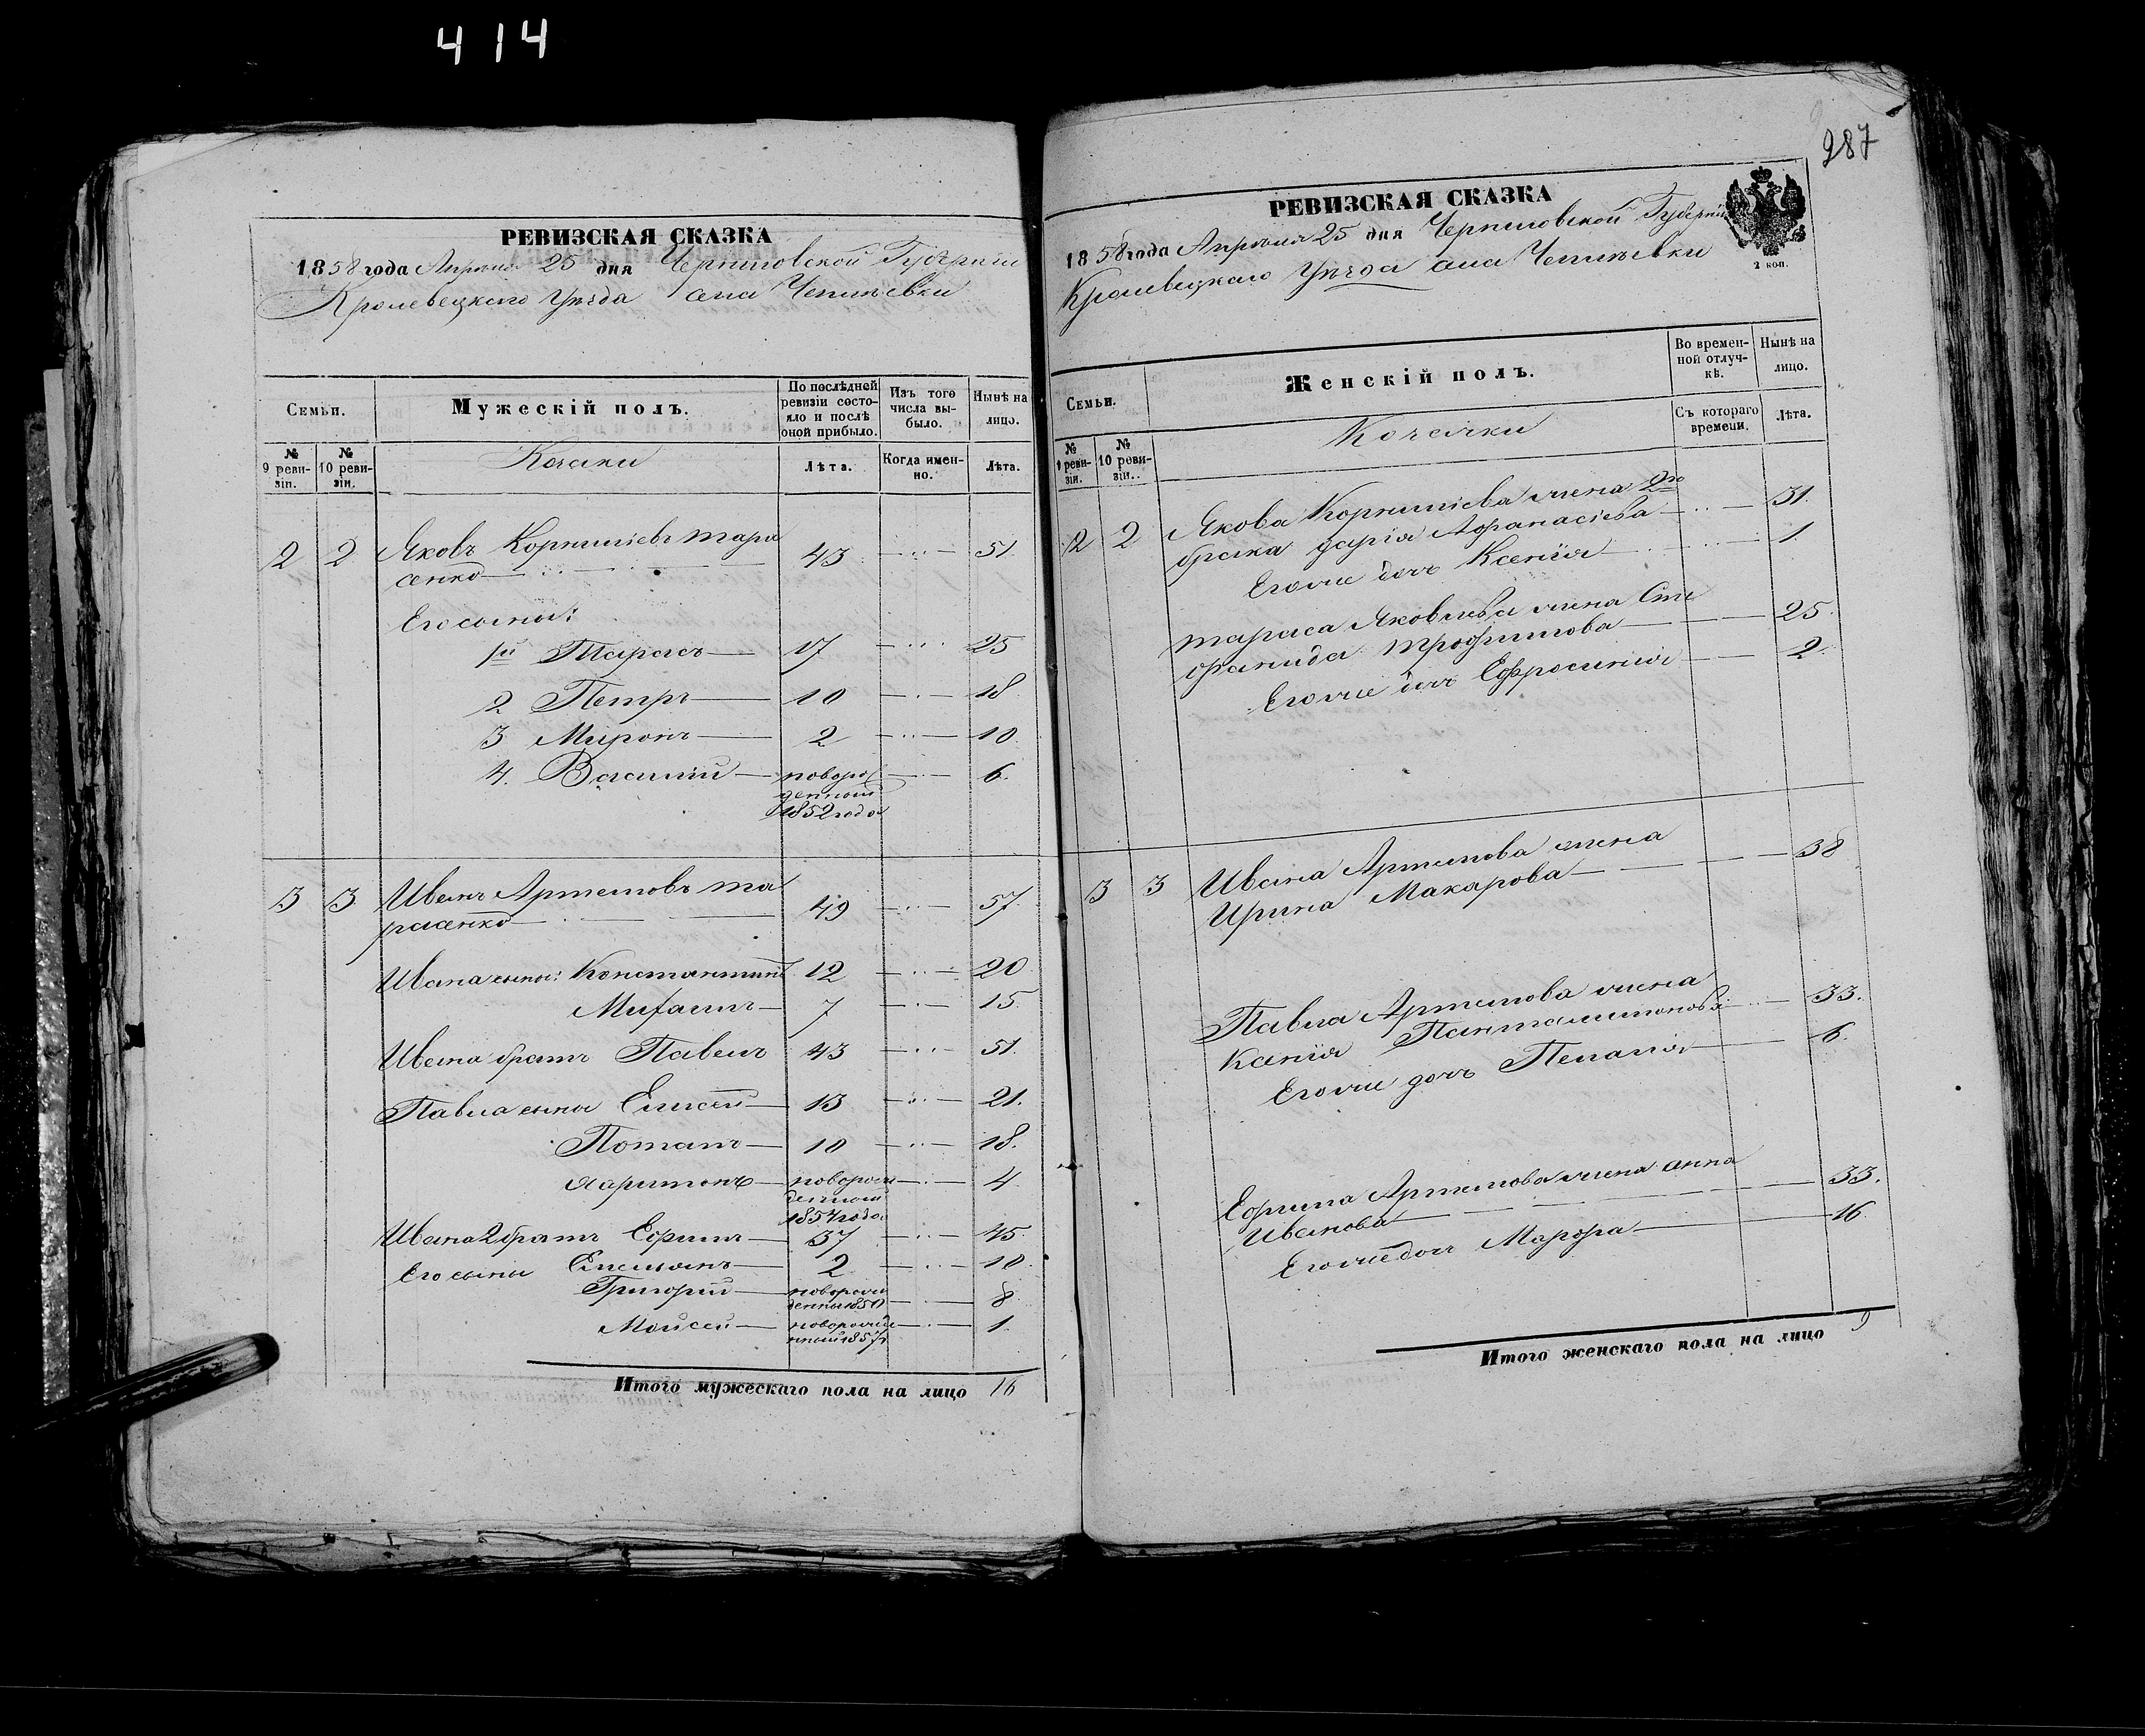 414
РЕВИЗСКАЯ СКАЗКА
1858 года Апреля 25 дня Черниговской Губернии
Кролевецкого Уезда села Чепиевки
Семьи.
Мужескій полъ.
По послѣдней ревизіи состояло и послѣ оной прибыло.
Изъ того числа выбыло.
Нынѣ на лицо.
№ 9 ревизіи.
№ 10 ревизіи.
Козаки
Лѣта.
Когда именно.
Лѣта.
2 2 Яковъ Корнилiевъ тара 43 51.
сенко
Его сыны:
1й Тарасъ 17 25
2 Петръ 10 18
3 Миронъ 2 10
4. Василий новорож 6.
денный
1852 года
3 3 Иванъ Артемовъ та 49 57.
расенко
Ивана сыны: Константинъ 12 20
Михаилъ 7 15.
Ивана братъ Павелъ 43 51.
Павла сыны Елисей 13 21.
Потапъ 10 18.
Харитонъ новорож 4
денный
1854 года
Ивана 2 братъ Ефимъ 37 45.
Его сыны Емельянъ 2 10.
Григорий новорож 8
денный 1850
Мойсей новорожде 1.
нный 1857г
Итого мужескаго пола на лицо 16
287
РЕВИЗСКАЯ СКАЗКА
1858 года Апреля 25 дня Черниговской Губернии
2 коп.
Кролевецкаго Уезда села Чепиевки
Семьи.
Женскій полъ.
Во временной отлучкѣ.
Нынѣ на лицо.
№ 9 ревизіи.
№ 10 ревизіи.
Козачки
Съ котораго времени.
Лѣта.
2 2 Якова Корнилiева жена 2го 31.
брака Дарiя Афанасiева
Его же дочь Ксенiя 1.
Тараса Яковлева жена Сте 25.
фанида Трофимова
Его же дочь Ефросинiя 2.
3 3 Ивана Артемова жена 38
Ирина Макарова
Павла Артемова жена 33.
Ксенiя Пантелимонова
Его же дочь Пелагiя 6.
Ефима Артемова жена Анна 33.
Иванова
Его же дочь Марфа 16
Итого женскаго пола на лицо 9